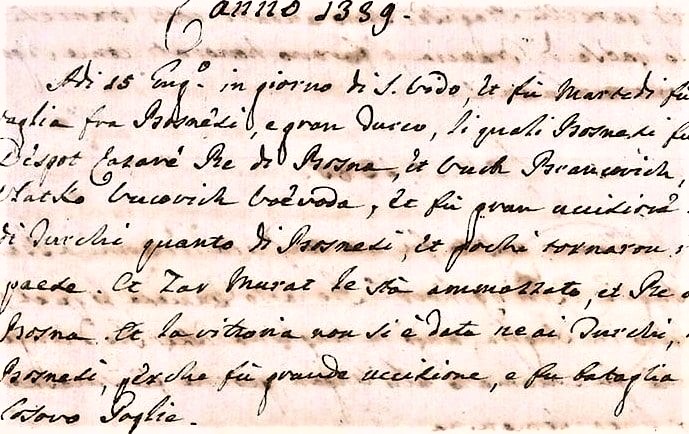 anno 1389.
Adi 15 Zug.º in giorno di S. Vodo, et fù Martedi fù
taglia fra Bosnesi, e gran Turco, li quali Bosnesi fu
Despot Lazare Re di Bosna, et Vuch Brancovich,
Vlatko Vucovich Voevoda, et fù gran uccisione
di Turchi quanto di Bosnesi, et pochi tornaron
paese. Et Zar Murat le stà ammazzato, et Re
Bosna. Et la vittoria non si è data ne ai Turchi,
Bosnesi, perche fù grande uccisione, e fu bataglia
Cosovo Poglie.